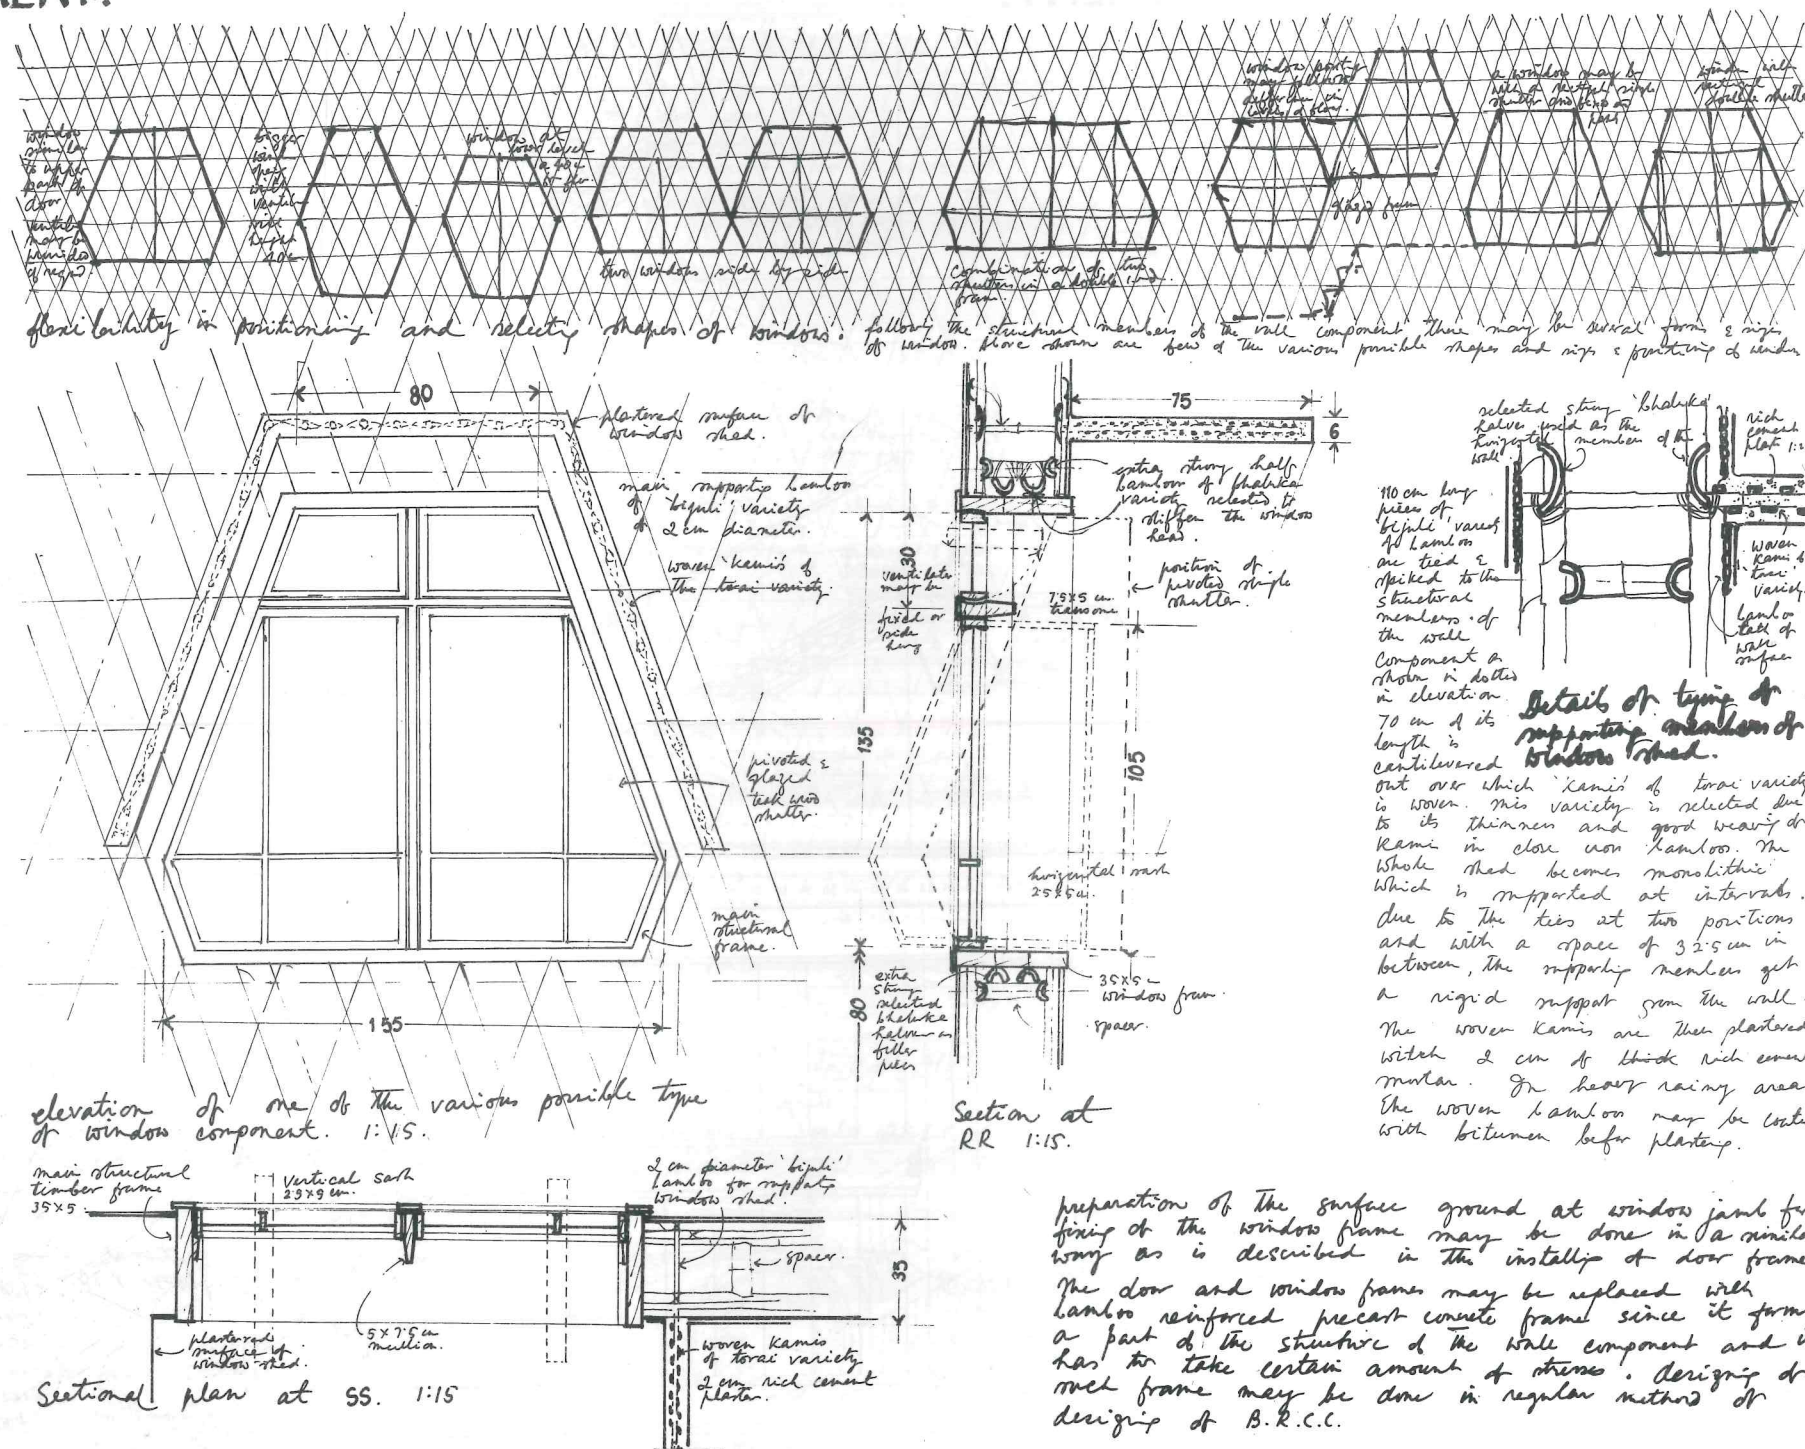 window
similar
to upper
part of
door
ventila
may be
provided
if reqd.
bigger
wind
with
ventila
height
40c
window at
lower level
two windows side by side
combination of two
shutters in a double
frame.
window
may follow
a window may be
with a vertical single
shutter and fixed on
window with
double shutter
flexibility in positioning and selectig shapes of windows. following the structural members of the wall component there may be several forms & sizes
of window. Above shown are few of the various possible shapes and sizes & positioning of window
80
plastered surface of
window shed.
main supportig bamboo
of 'bijuli' variety
of 2 cm diameter.
woven 'kamis' of
the torai variety.
pivoted &
glazed
teak wood
shutter.
main
structural
frame.
155
elevation of one of the various possible type
of window component. 1:15.
75
6
extra strong half
bamboos of bhaluka
variety selected to
stiffen the window
head.
30
ventilator
may be
fixed or
side
hung
7.5x5 cm
transome
position of
pivoted single
shutter.
135
105
horizontal sash
2.5x5 cm.
80
extra
strong
selected
bhaluka
halves as
filler
pieces
35x5 cm
window frame.
spacer.
Section at
RR 1:15.
selected strong 'bhaluka'
halves used as the
horizontal members of the
wall
rich
cement
plast 1:2
110 cm long
pieces of
'bijuli' variety
of bamboo
are tied &
spiked to the
structural
members of
the wall
component as
shown in dotted
in elevation.
70 cm of its
length is
cantilevered
woven
kamis of
'torai'
variety
bamboo
tati of
wall
surface
Details of tying of
supporting members of
window shed.
out over which 'kamis' of torai variety
is woven. This variety is selected due
to its thinness and good weavig of
kami in close cross bamboos. The
whole shed becomes monolithic
which is supported at intervals.
due to the ties at two positions
and with a space of 32.5 cm in
between, the supportig members get
a rigid support from the wall.
The woven kamis are then plastered
with 2 cm of thick rich cement
mortar. In heavy rainy area
the woven bamboos may be coated
with bitumen befor plasterig.
main structural
timber frame
35x5.
vertical sash
2 cm diameter 'bijuli'
bamboo for supportig
window shed.
spacer.
35
plastered
surface of
window shed.
5x7.5 cm
mullion.
woven kamis
of torai variety
2 cm rich cement
plaster.
Sectional plan at SS. 1:15
preparation of the surface ground at window jamb for
fixing of the window frame may be done in a similar
way as is described in the installig of door frame
The door and window frames may be replaced with
bamboo reinforced precast concrete frame since it forms
a part of the structure of the wall component and it
has to take certain amount of stresses. designig of
such frame may be done in regular method of
designig of B.R.C.C.